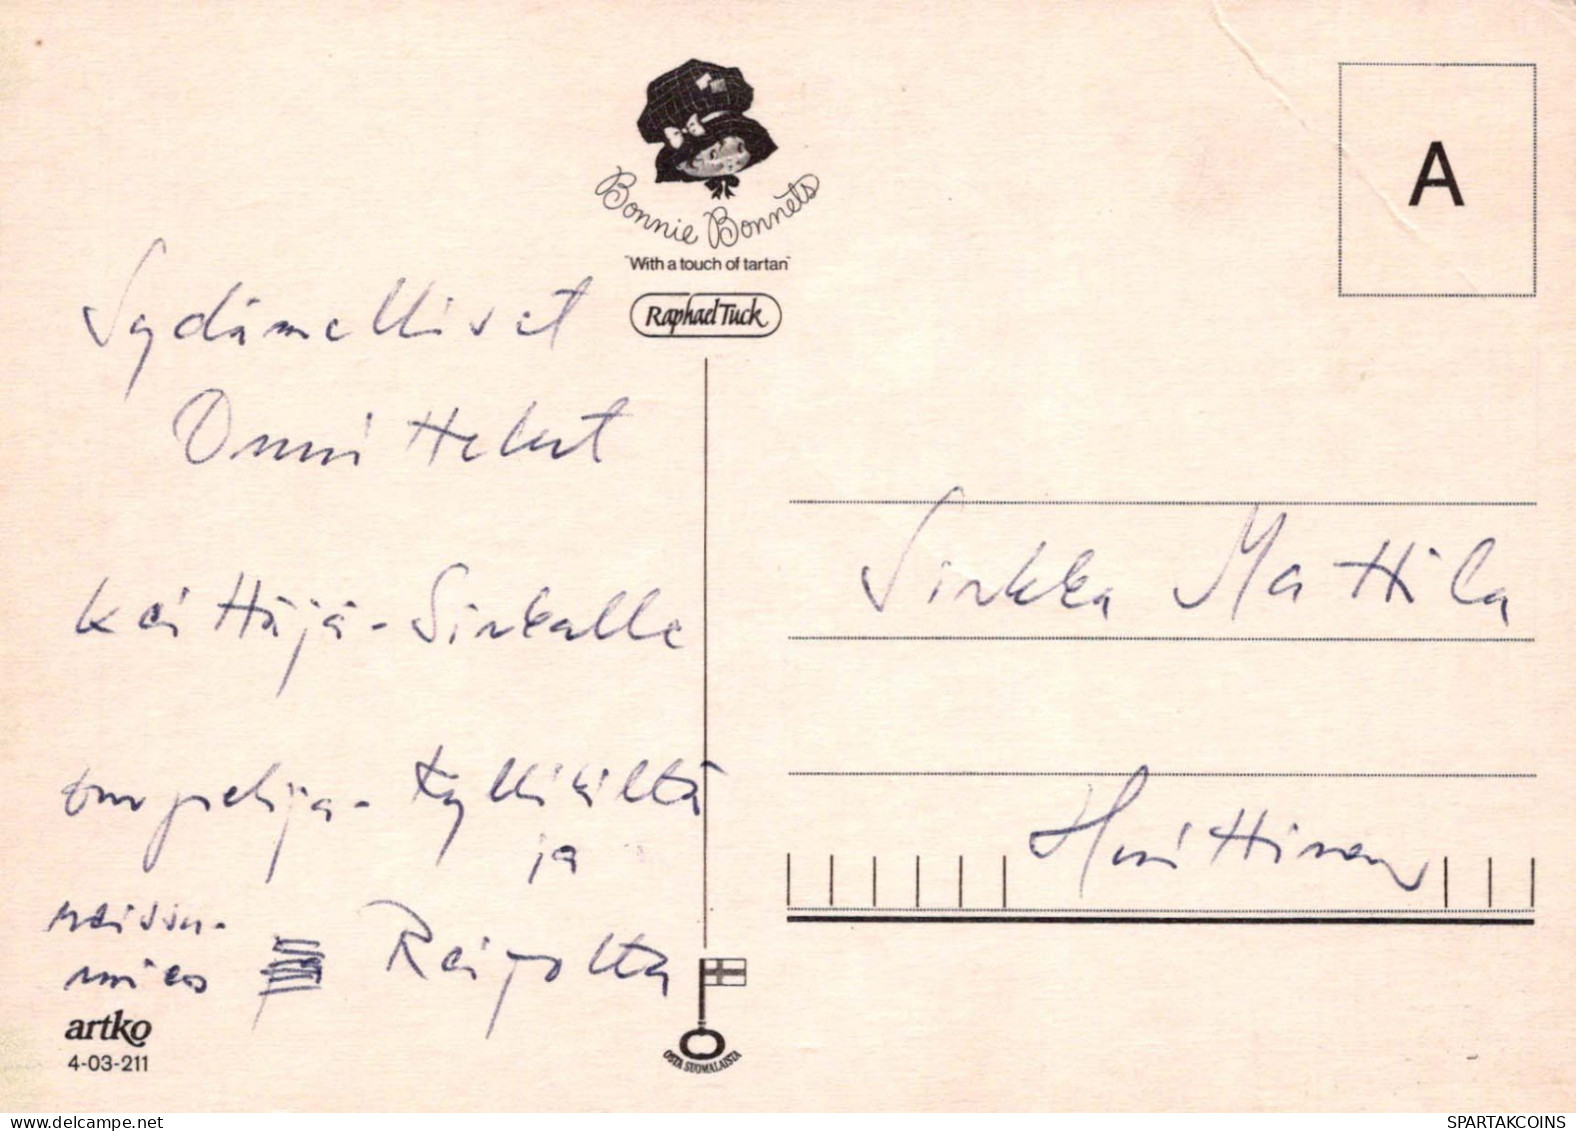 Bonnie Bonnets
"With a touch of tartan"
Raphael Tuck
A
Sydämelliset
Onnittelut
Keittäjä-Sirkalle
ompelija-Kyllikiltä
ja
naissu-
mies Reijolta
Sirkka Mattila
Huittinen
artko
4-03-211
OSTA SUOMALAISTA
SPARTAKCOINS